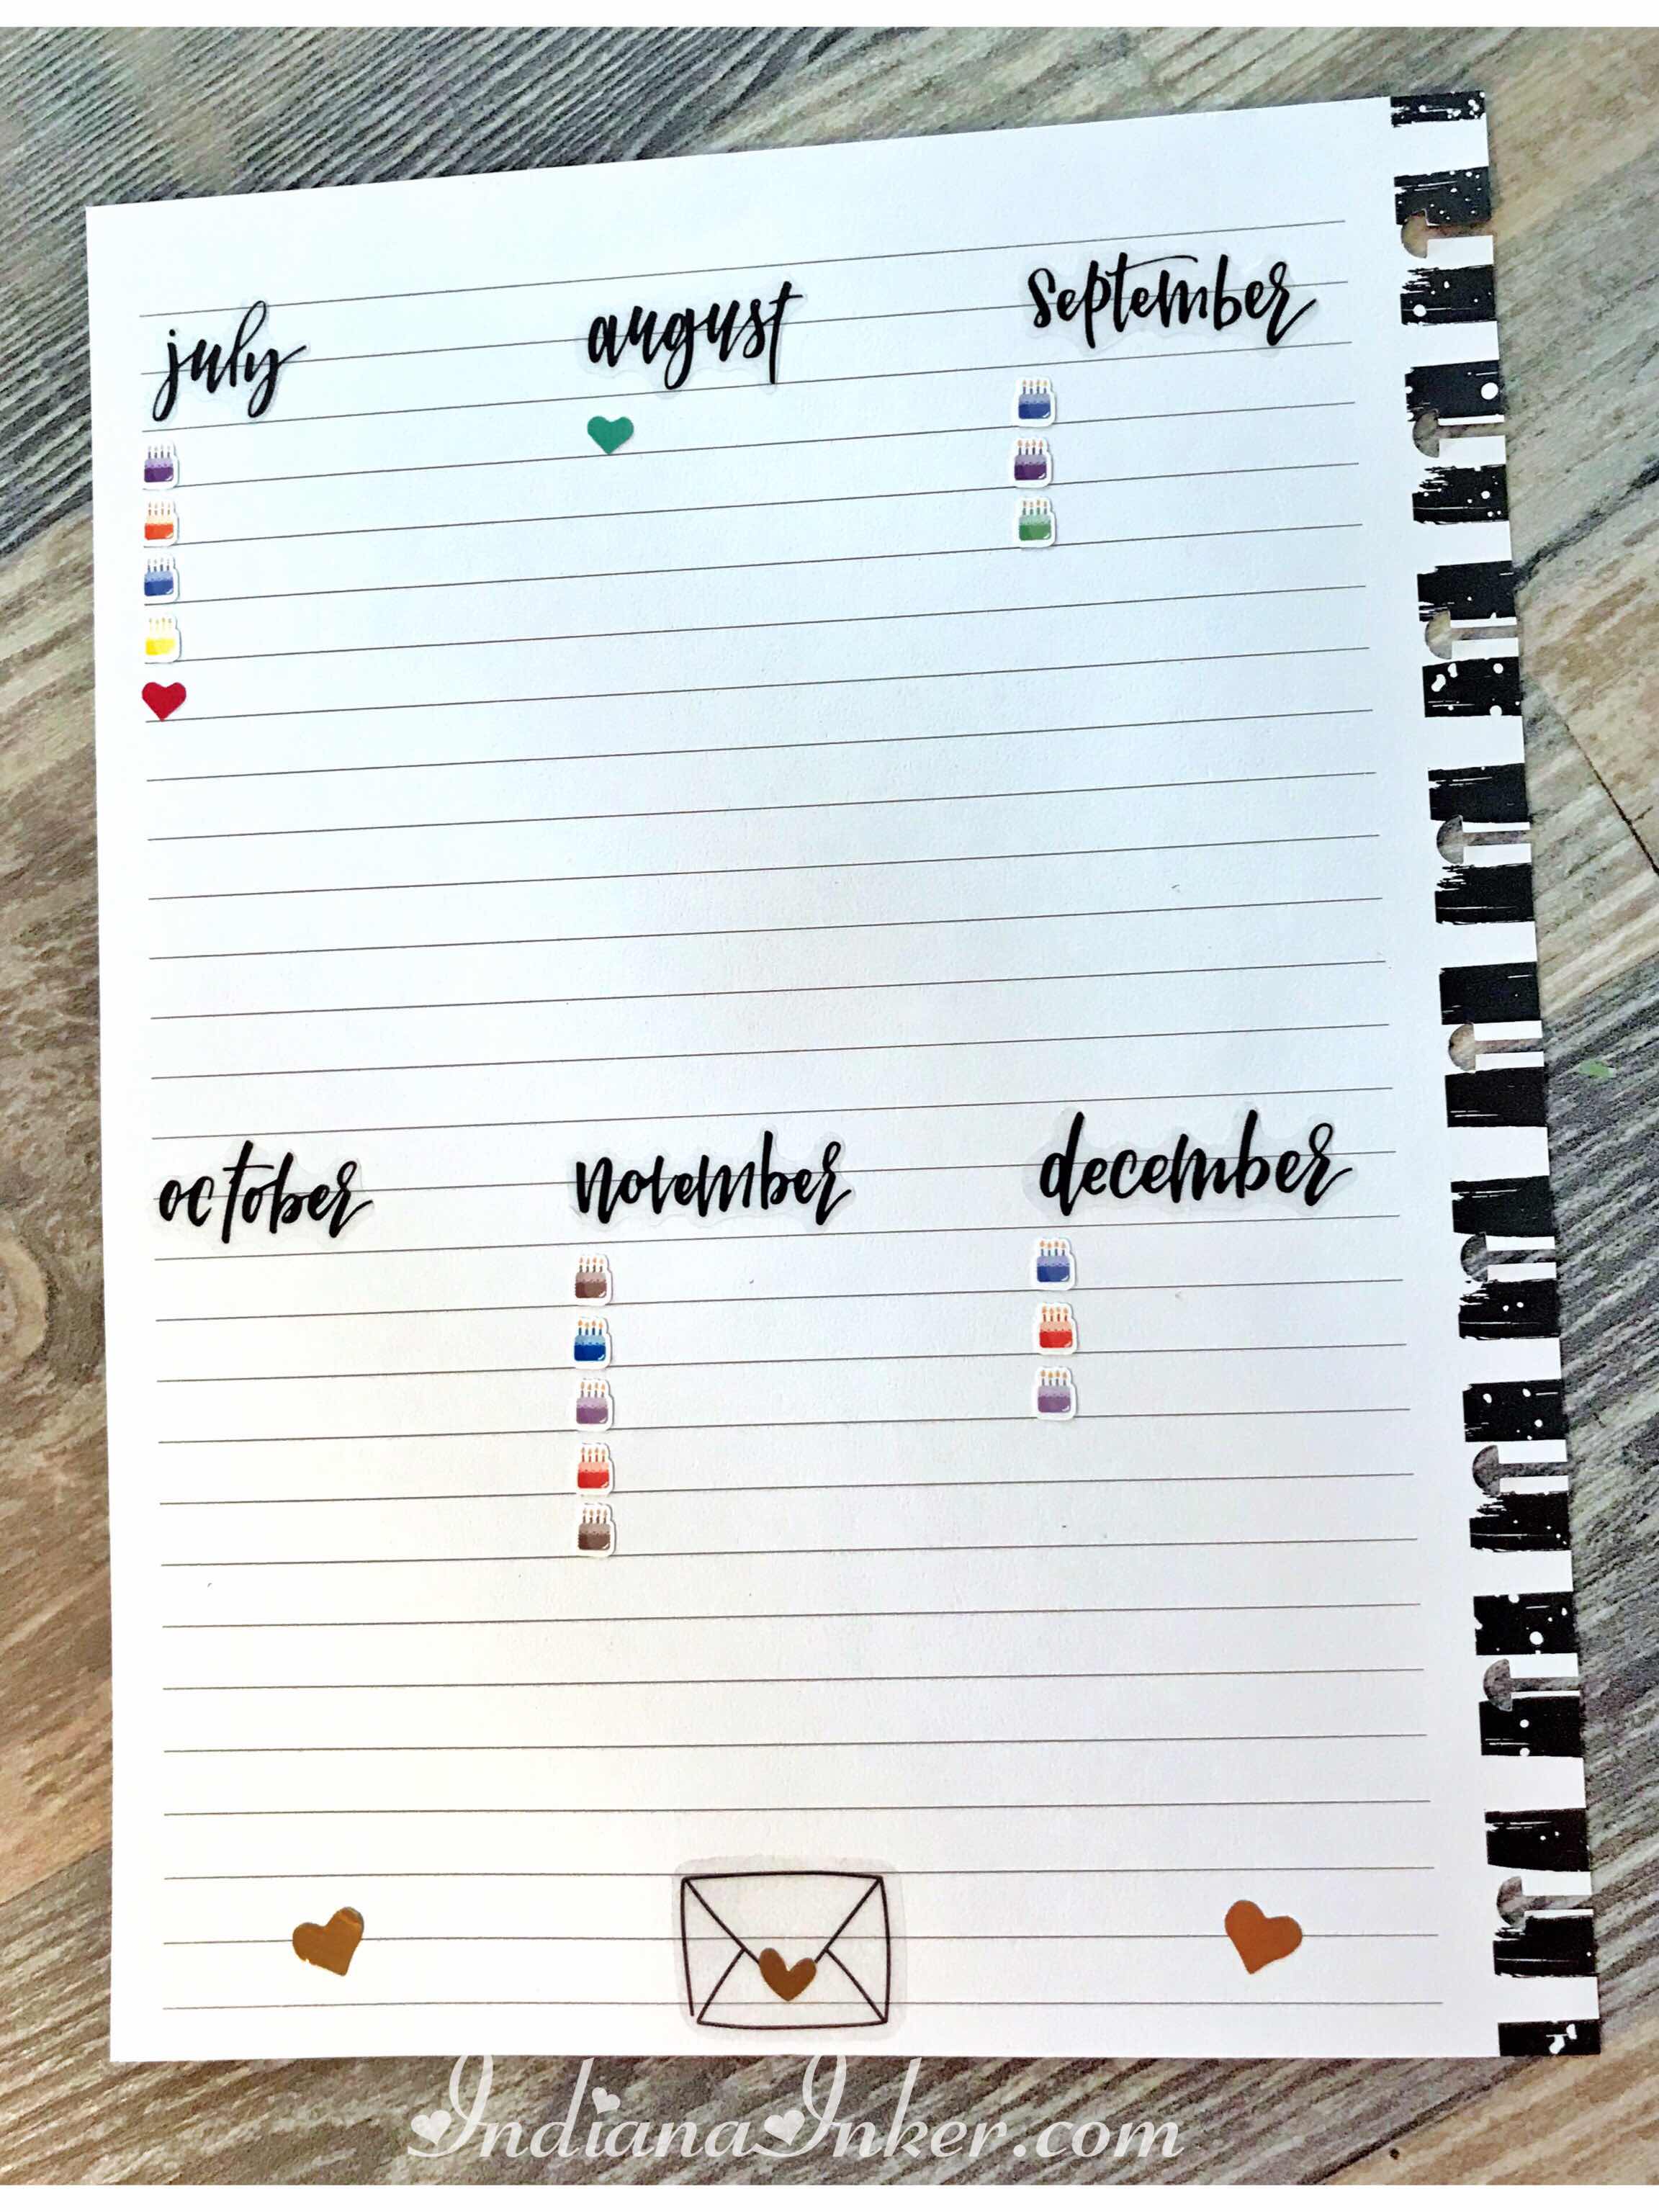 july august september
october november december
IndianaInker.com